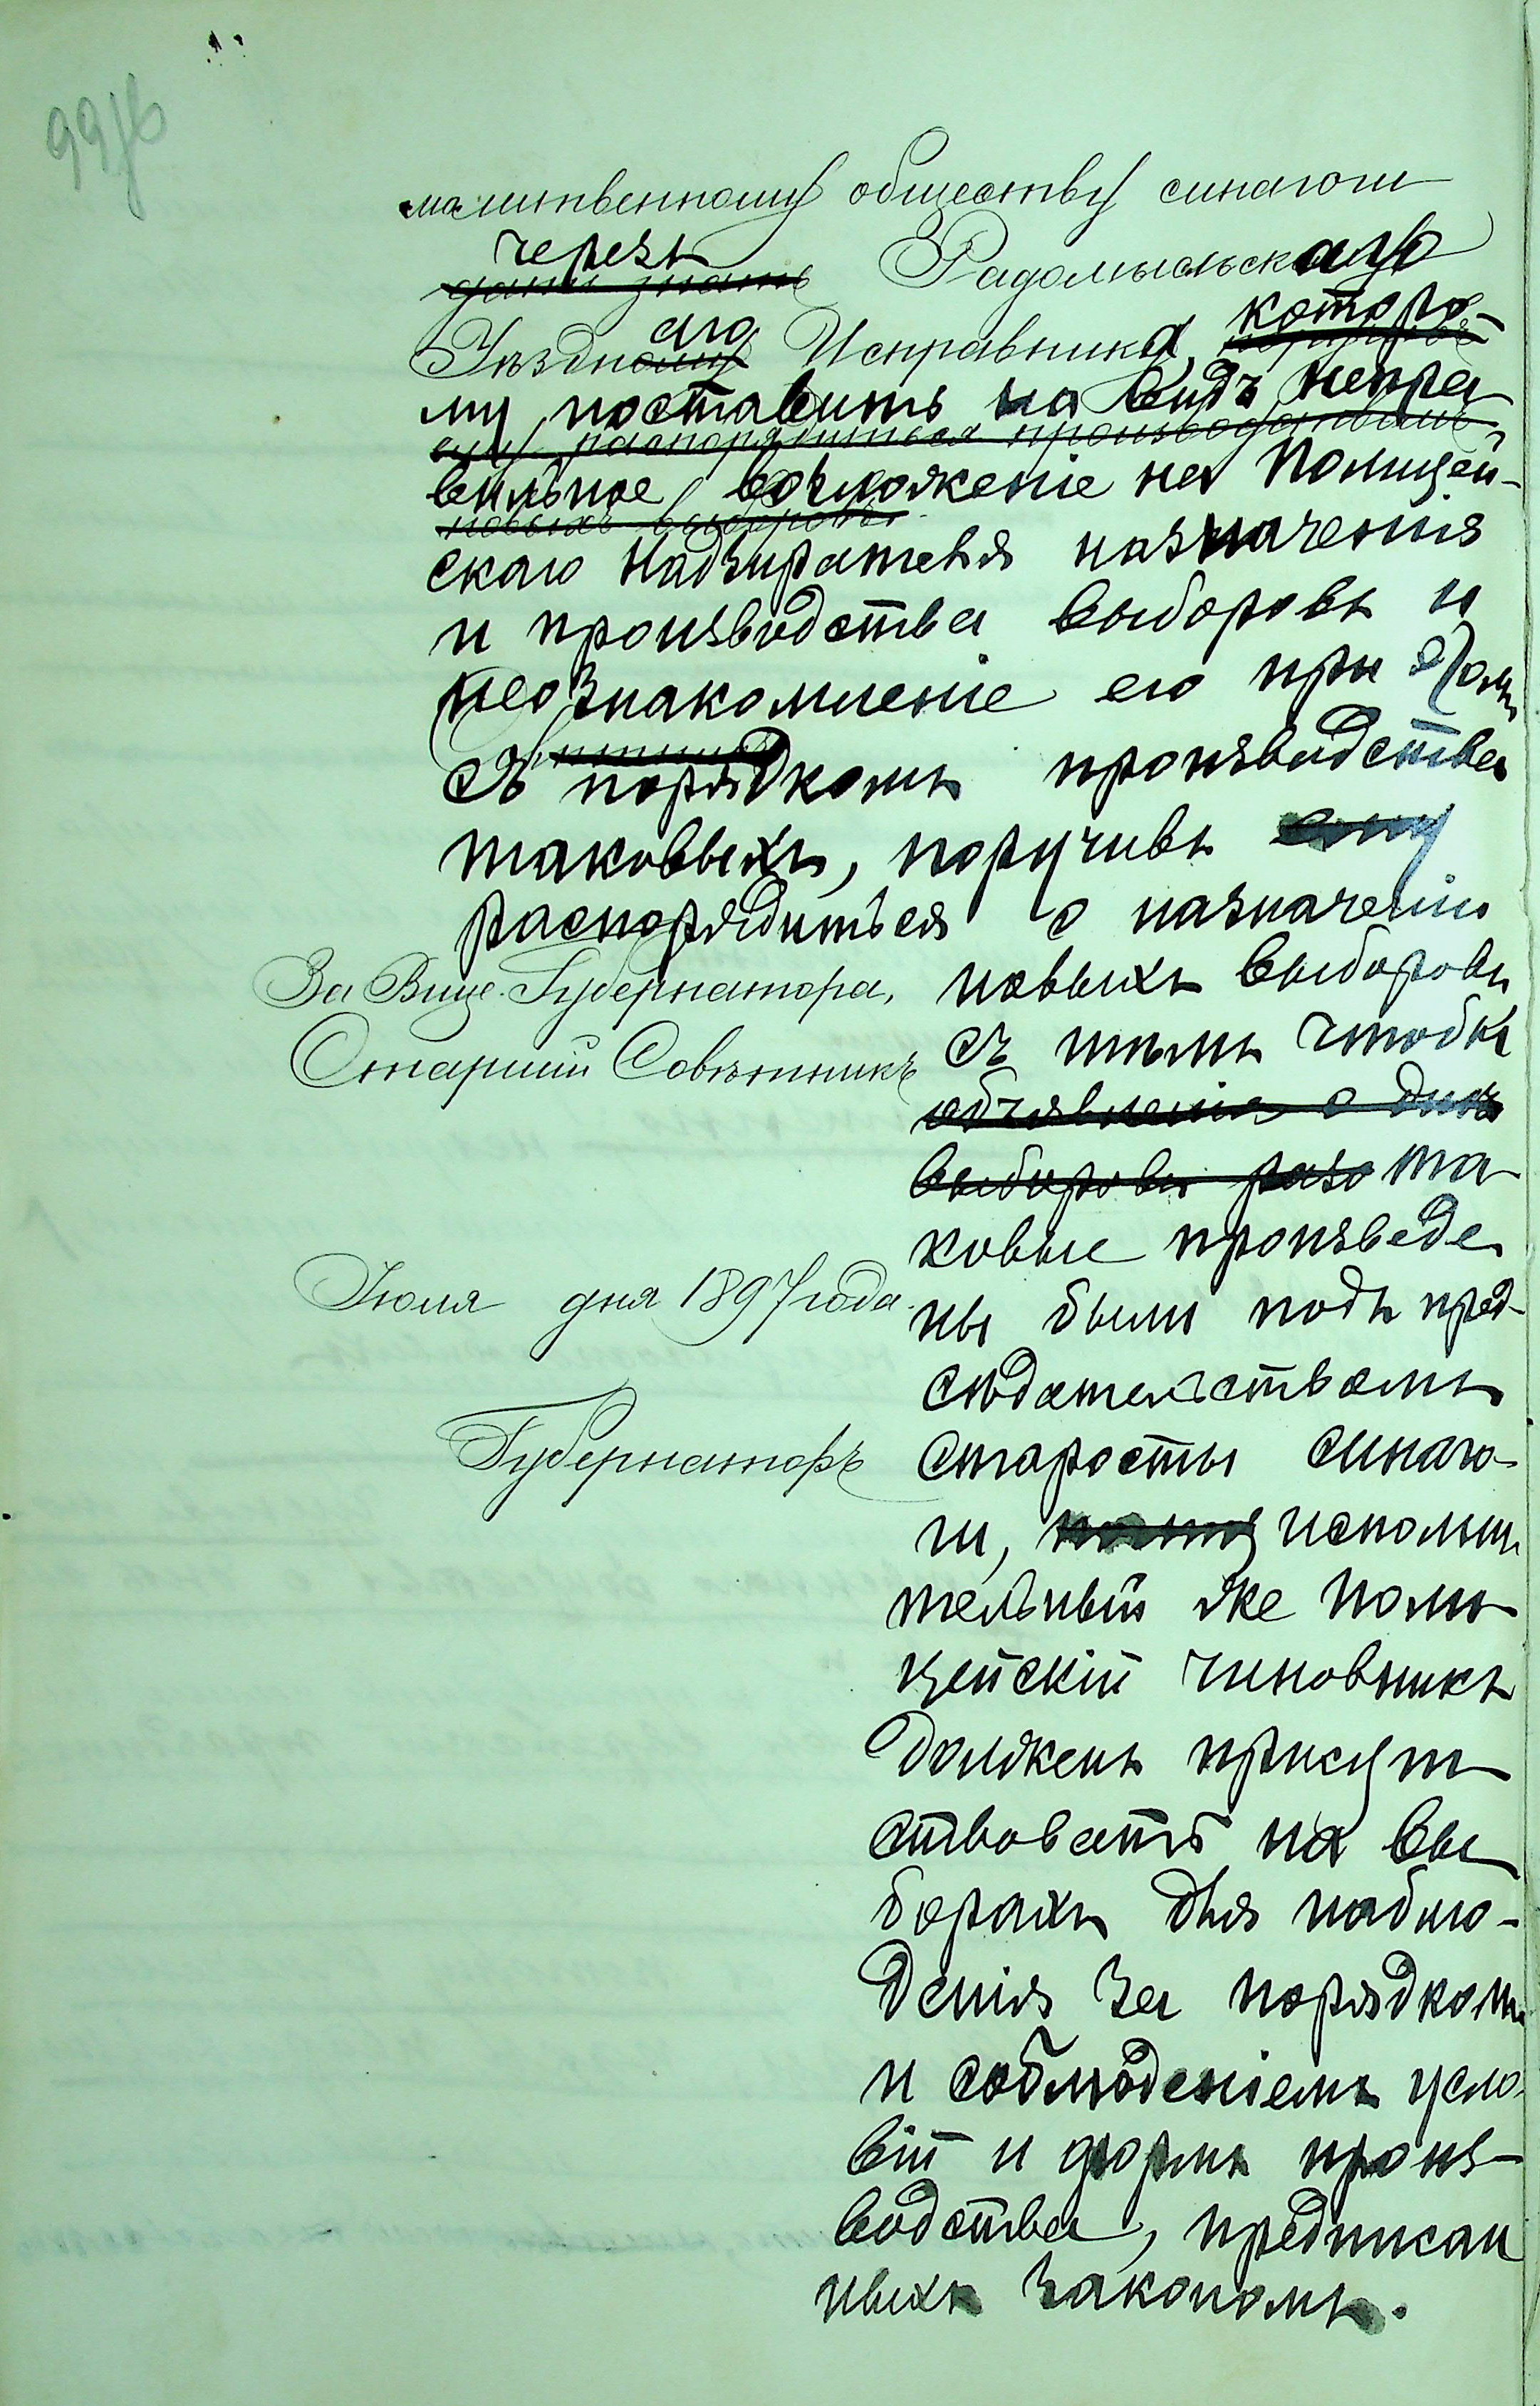 99об
молитвенному обществу синагоги
черезъ
дать знать Радомысльскаго
Уѣзднаго Исправника, которо-
му поставить на видъ непра-
ему распорядиться производствомъ
вильное возложеніе на Полицей-
новыхъ выборовъ.
скаго Надзирателя назначенія
и производства выборовъ и
неознакомленіе его при этомъ
съ порядкомъ производства
таковыхъ, поручивъ ему
распорядиться о назначеніи
новыхъ выборовъ
съ тѣмъ чтобы
объявленіе о днѣ
выборовъ та-
ковые произведе-
ны были подъ пред-
сѣдательствомъ
старосты синаго-
ги, исполни-
тельный же поли-
цейскій чиновникъ
долженъ присут-
ствовать на вы-
борахъ для наблю-
денія за порядкомъ
и соблюденіемъ усло-
вій и формъ произ-
водства, предписан
ныхъ закономъ.
За Вице-Губернатора,
Старшій Совѣтникъ
Іюля дня 1897 года.
Губернаторъ